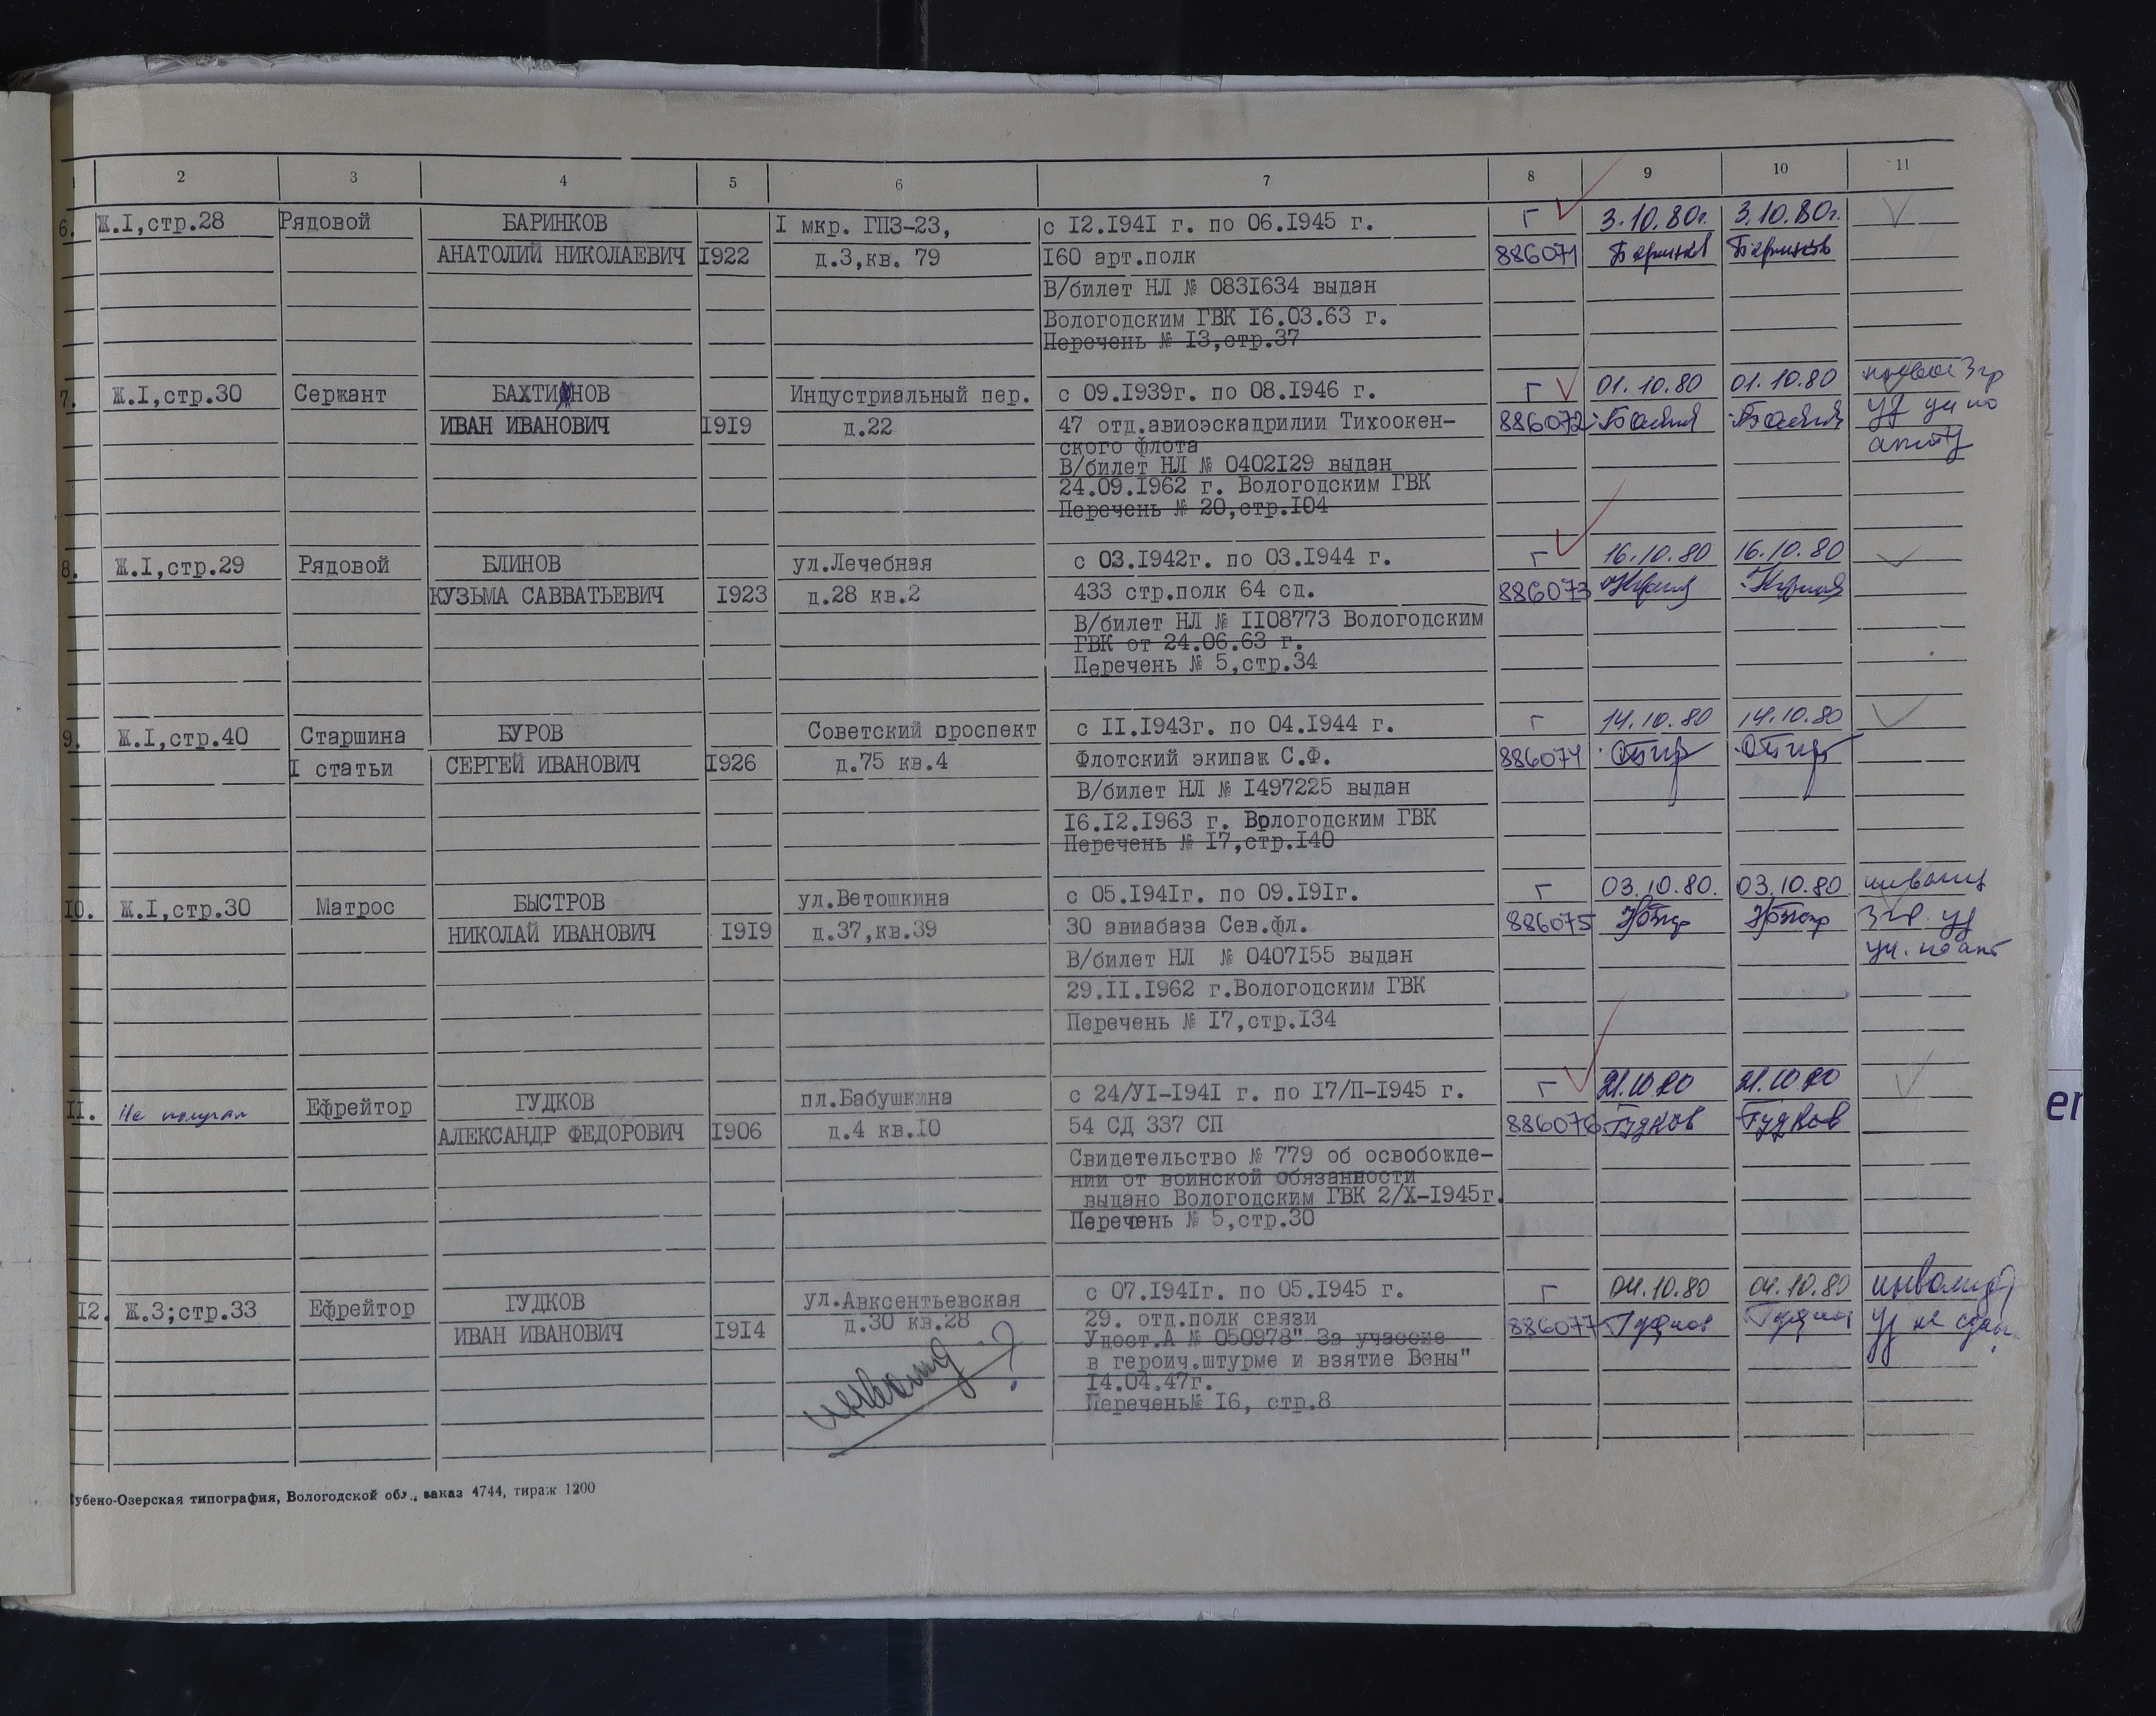 1 2 3 4 5 6 7 8 9 10 11
6. Ж.I,стр.28 Рядовой БАРИНКОВ I мкр. ГПЗ-23, с I2.I94I г. по 06.I945 г. Г 3.10.80г. 3.10.80г.
АНАТОЛИЙ НИКОЛАЕВИЧ I922 д.3,кв. 79 I60 арт.полк 886071 Баринков Баринков
В/билет НЛ № 083I634 выдан
Вологодским ГВК I6.03.63 г.
Перечень № I3,стр.37
7. Ж.I,стр.30 Сержант БАХТИОНОВ Индустриальный пер. с 09.I939г. по 08.I946 г. Г 01.10.80 01.10.80 3 гр
ИВАН ИВАНОВИЧ I9I9 д.22 47 отд.авиоэскадрилии Тихоокен- 886072 уд
ского флота
В/билет НЛ № 0402I29 выдан
24.09.I962 г. Вологодским ГВК
Перечень № 20,стр.I04
8. Ж.I,стр.29 Рядовой БЛИНОВ ул.Лечебная с 03.I942г. по 03.I944 г. Г 16.10.80 16.10.80
КУЗЬМА САВВАТЬЕВИЧ I923 д.28 кв.2 433 стр.полк 64 сд. 886073
В/билет НЛ № II08773 Вологодским
ГВК от 24.06.63 г.
Перечень № 5,стр.34
9. Ж.I,стр.40 Старшина БУРОВ Советский проспект с II.I943г. по 04.I944 г. Г 14.10.80 14.10.80
I статьи СЕРГЕЙ ИВАНОВИЧ I926 д.75 кв.4 Флотский экипаж С.Ф. 886074
В/билет НЛ № I497225 выдан
I6.I2.I963 г. Врлогодским ГВК
Перечень № I7,стр.I40
I0. Ж.I,стр.30 Матрос БЫСТРОВ ул.Ветошкина с 05.I94Iг. по 09.I9Iг. Г 03.10.80. 03.10.80 инвалид
НИКОЛАЙ ИВАНОВИЧ I9I9 д.37,кв.39 30 авиабаза Сев.фл. 886075 3 гр. уд
В/билет НЛ № 0407I55 выдан
29.II.I962 г.Вологодским ГВК
Перечень № I7,стр.I34
II. Не получал Ефрейтор ГУДКОВ пл.Бабушкина с 24/УI-I94I г. по I7/П-I945 г. Г 21.10.80 21.10.80
АЛЕКСАНДР ФЕДОРОВИЧ I906 д.4 кв.I0 54 СД 337 СП 886076 Гудков Гудков
Свидетельство № 779 об освобожде-
нии от воинской обязанности
выдано Вологодским ГВК 2/X-I945г.
Перечень № 5,стр.30
I2. Ж.3;стр.33 Ефрейтор ГУДКОВ ул.Авксентьевская с 07.I94Iг. по 05.I945 г. Г 04.10.80 04.10.80 инвалид
ИВАН ИВАНОВИЧ I9I4 д.30 кв.28 29. отд.полк связи 886077 Гудков Гудков уд не сдал
Удост.А № 050978" За участие
в героич.штурме и взятие Вены"
инвалид ? I4.04.47г.
Перечень№ I6, стр.8
убено-Озерская типография, Вологодской обл., заказ 4744, тираж 1200